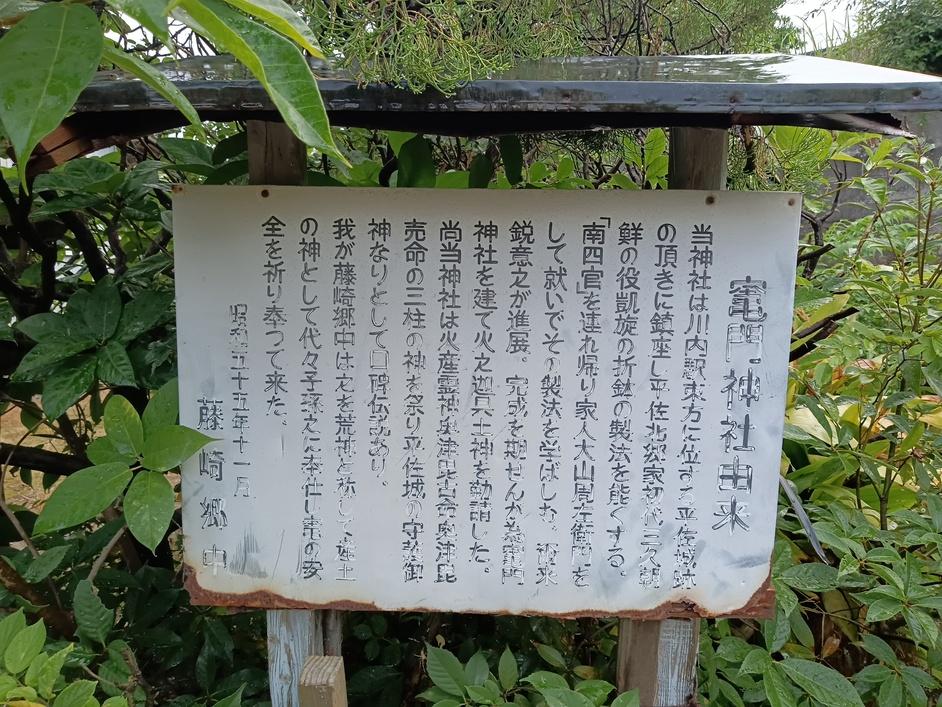 竃門神社由来
当神社は川内駅東方に位する平佐城跡
の頂きに鎮座し平佐北郷家初代三久朝
鮮の役凱旋の折鉢の製法を能くする。
「南四官」を連れ帰り家人大山周左衛門を
して就いでその製法を学ばしむ。爾来
鋭意之が進展。完成を期せんが為竃門
神社を建て火之迦具土神を勧請した。
尚当神社は火産霊神奥津比古命奥津毘
売命の三柱の神を祭り平佐城の守護御
神なりとして口碑伝説あり。
我が藤崎郷中は之を荒神と称して産土
の神として代々子孫之に奉仕し竃の安
全を祈り奉つて来た。
昭和五十五年十一月
藤崎郷中